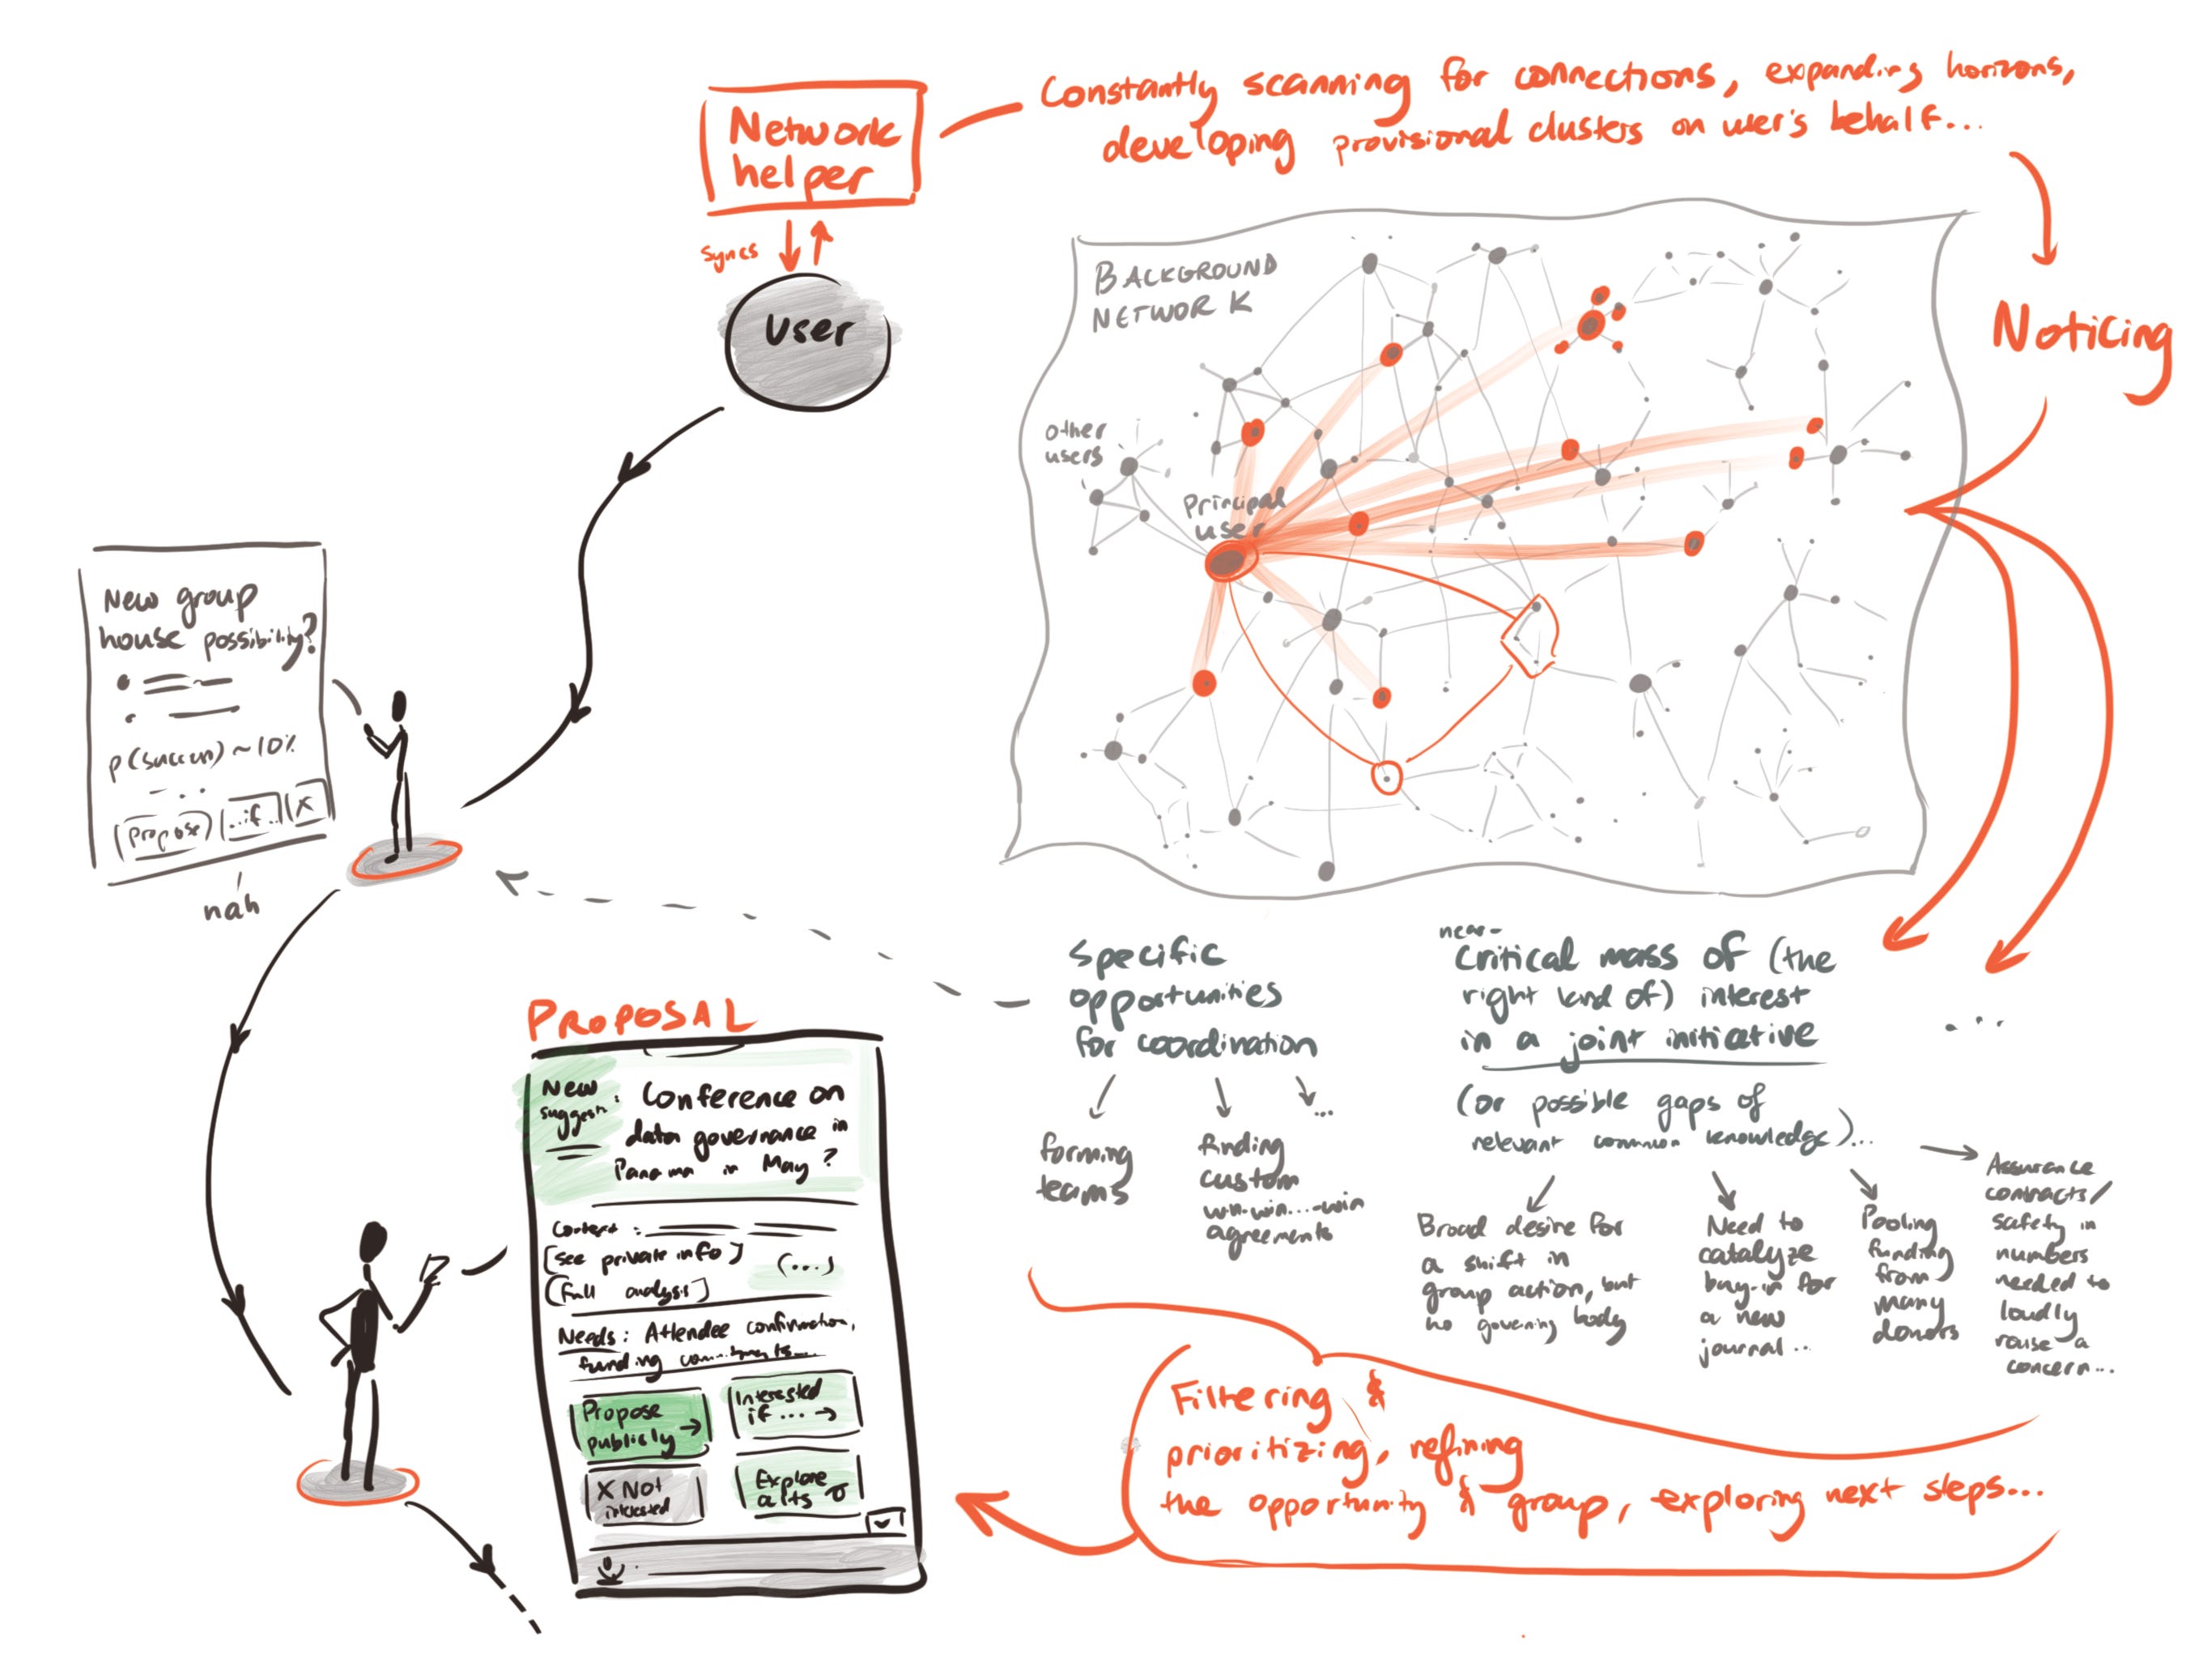 Network
helper
Constantly scanning for connections, expanding horizons,
developing provisional clusters on user's behalf...
syncs
User
BACKGROUND
NETWORK
other
users
Principal
user
Noticing
New group
house possibility?
p(success) ~10%
...
Propose
..if..
X
nah
Specific
opportunities
for coordination
...
forming
teams
finding
custom
win-win...-win
agreements
near-
critical mass of (the
right kind of) interest
in a joint initiative
(or possible gaps of
relevant common knowledge)...
...
Broad desire for
a shift in
group action, but
no governing body
Need to
catalyze
buy-in for
a new
journal...
Pooling
funding
from
many
donors
Assurance
contracts/
safety in
numbers
needed to
loudly
raise a
concern...
PROPOSAL
New
suggest:
Conference on
data governance in
Panama in May?
Context:
[see private info]
(...)
[full analysis]
Needs: Attendee confirmation,
funding commitments...
Propose
publicly →
Interested
if ... →
X Not
interested
Explore
alts
Filtering &
prioritizing, refining
the opportunity & group, exploring next steps...